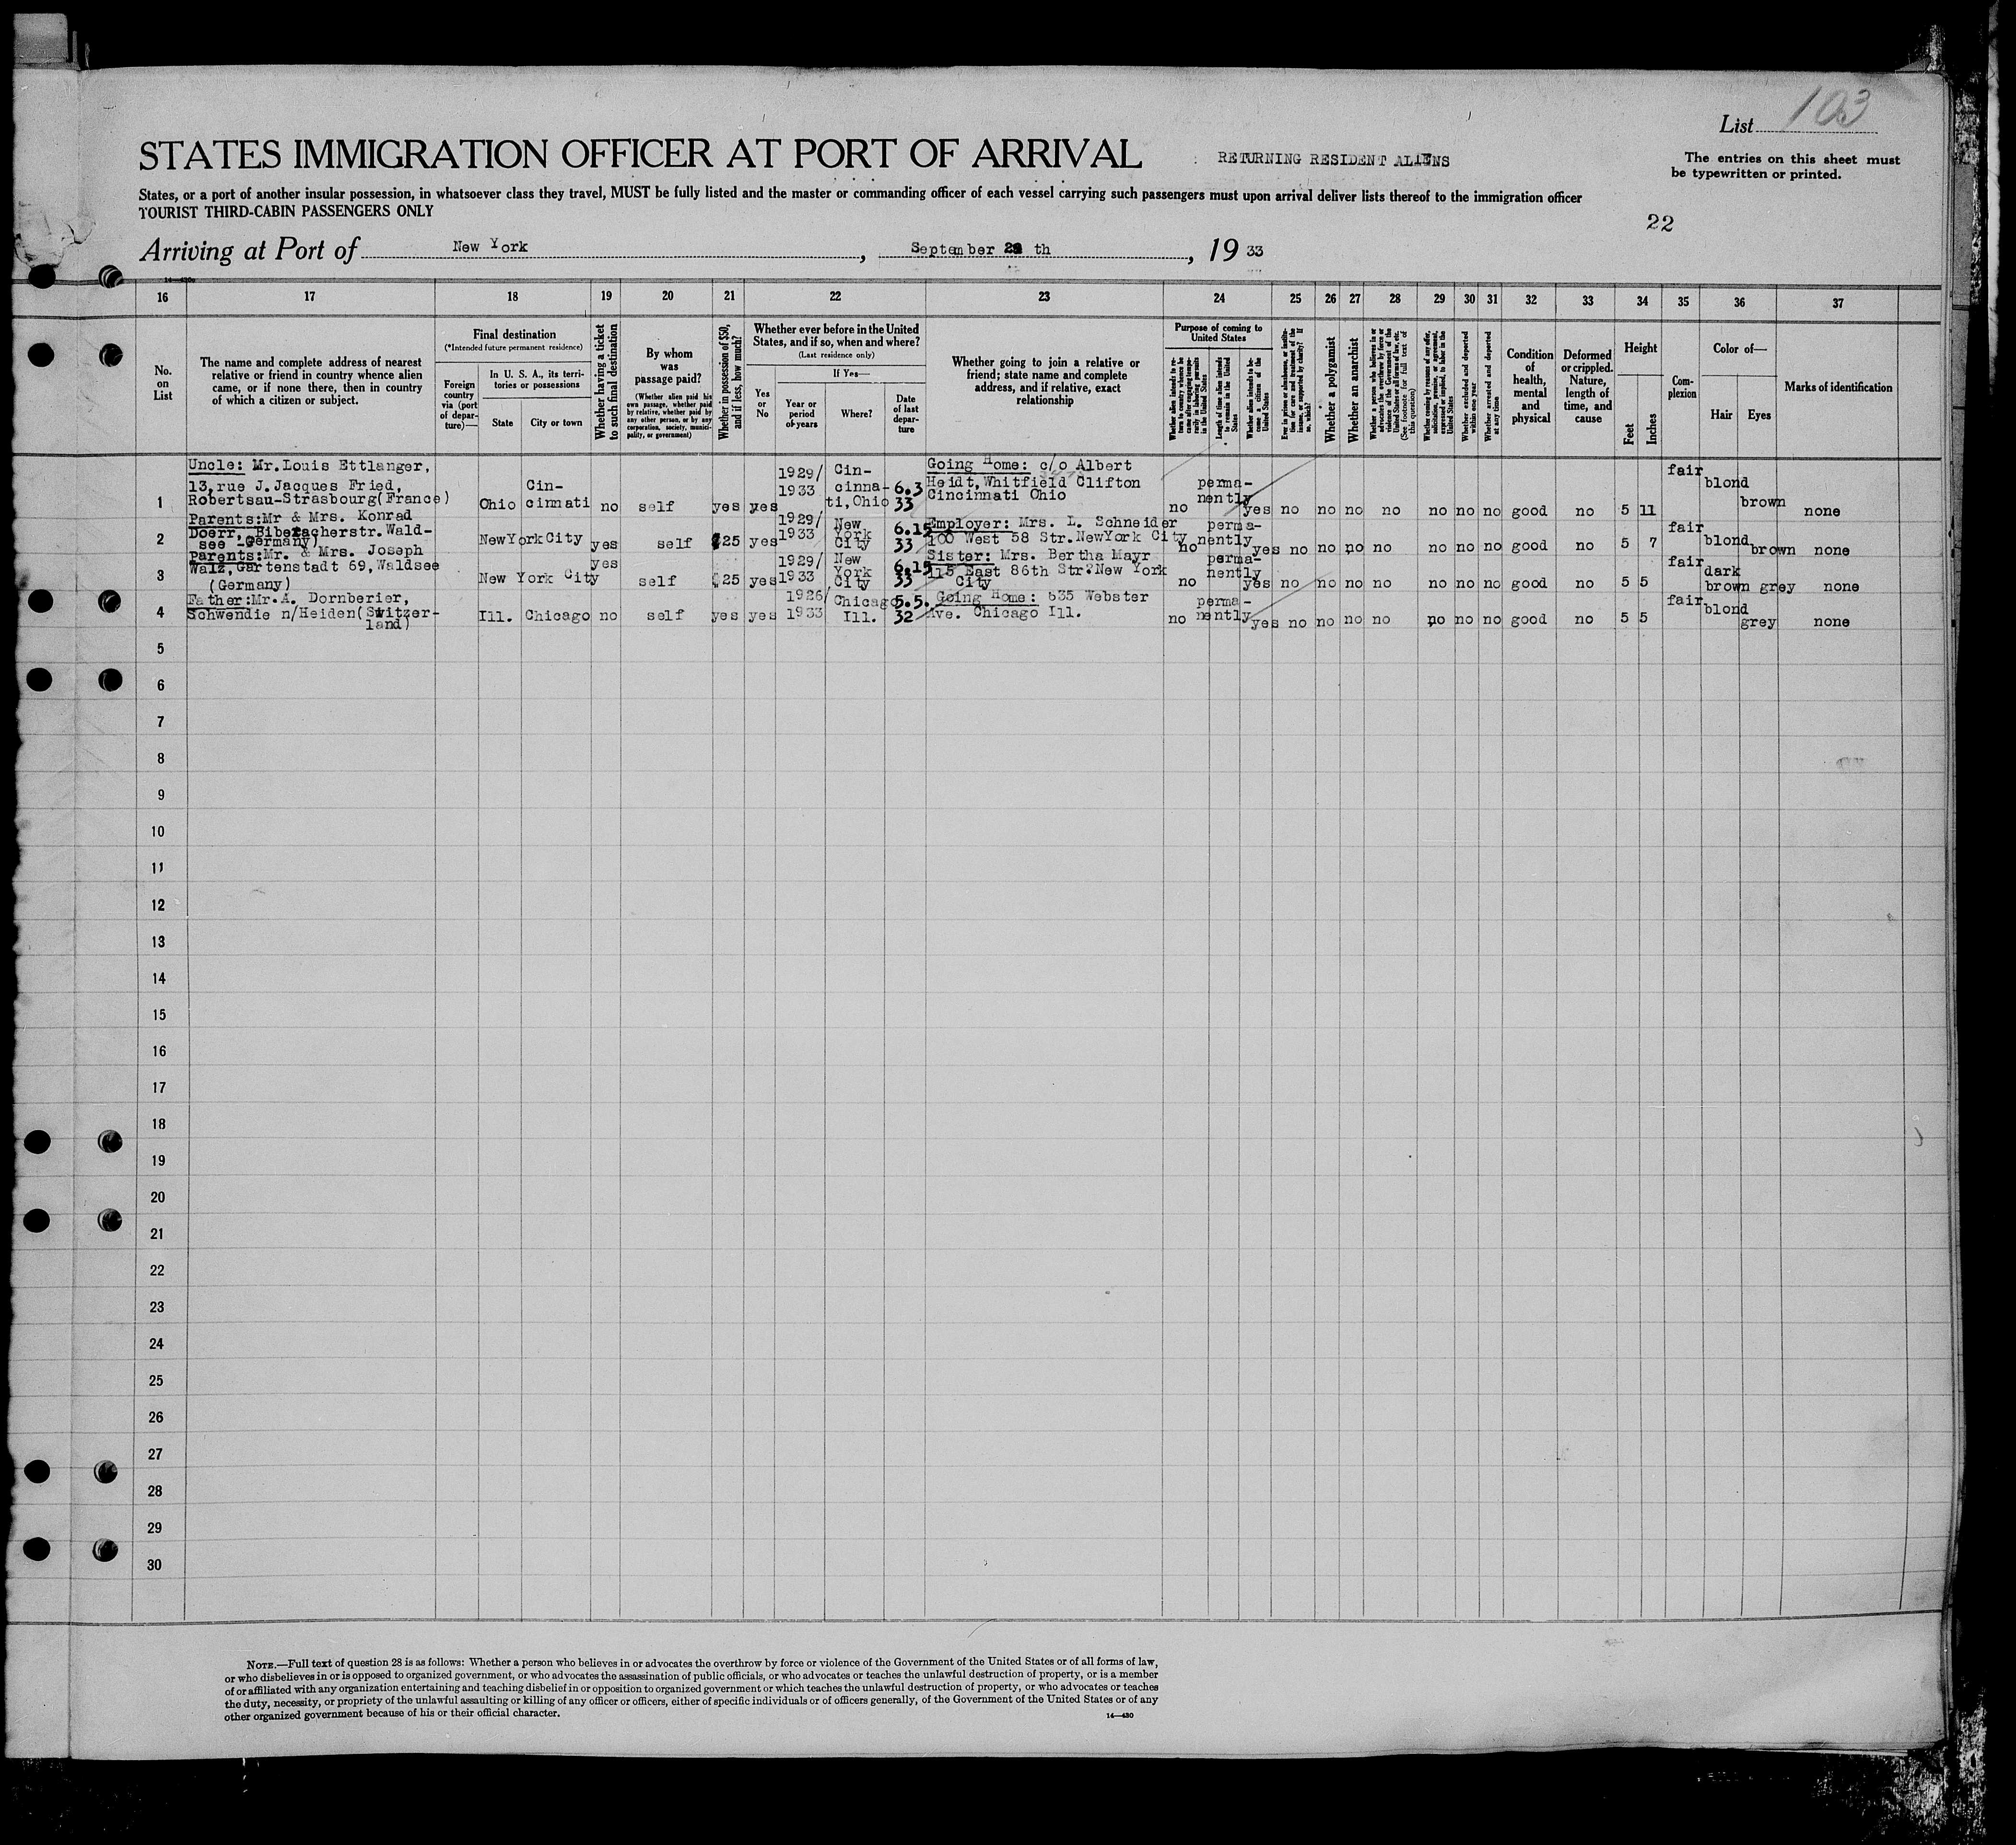 List 103
STATES IMMIGRATION OFFICER AT PORT OF ARRIVAL
RETURNING RESIDENT ALIENS
The entries on this sheet must
be typewritten or printed.
States, or a port of another insular possession, in whatsoever class they travel, MUST be fully listed and the master or commanding officer of each vessel carrying such passengers must upon arrival deliver lists thereof to the immigration officer
TOURIST THIRD-CABIN PASSENGERS ONLY
22
Arriving at Port of New York, September th, 19 33
16 17 18 19 20 21 22 23 24 25 26 27 28 29 30 31 32 33 34 35 36 37
No.
on
List
The name and complete address of nearest
relative or friend in country whence alien
came, or if none there, then in country
of which a citizen or subject.
Final destination
(*Intended future permanent residence)
Foreign
country
via (port
of depar-
ture)—
In U. S. A., its terri-
tories or possessions
State
City or town
Whether having a ticket
to such final destination
By whom
was
passage paid?
(Whether alien paid his
own passage, whether paid
by relative, whether paid by
any other person, or by any
corporation, society, munici-
pality, or government)
Whether in possession of $50,
and if less, how much?
Whether ever before in the United
States, and if so, when and where?
(Last residence only)
Yes
or
No
If Yes—
Year or
period
of years
Where?
Date
of last
depar-
ture
Whether going to join a relative or
friend; state name and complete
address, and if relative, exact
relationship
Purpose of coming to
United States
Whether alien intends to re-
turn to country whence he
came after engaging tempo-
rarily in laboring pursuits
in the United States
Length of time alien intends
to remain in the United
States
Whether alien intends to be-
come a citizen of the
United States
Ever in prison or almshouse, or institu-
tion for care and treatment of the
insane, or supported by charity? If
so, which?
Whether a polygamist
Whether an anarchist
Whether a person who believes in or
advocates the overthrow by force or
violence of the Government of the
United States or all forms of law, etc.
(See footnote for full text of
this question)
Whether coming by reasons of any offer,
solicitation, promise, or agreement,
expressed or implied, to labor in the
United States
Whether excluded and deported
within one year
Whether arrested and deported
at any time
Condition
of
health,
mental
and
physical
Deformed
or crippled.
Nature,
length of
time, and
cause
Height
Feet
Inches
Com-
plexion
Color of—
Hair
Eyes
Marks of identification
1
Uncle: Mr. Louis Ettlanger,
13, rue J. Jacques Fried,
Robertsau-Strasbourg(France)
Ohio
Cin-
cinnati
no self yes yes
1929/
1933
Cin-
cinna-
ti, Ohio
6.3
33
Going Home: c/o Albert
Heidt, Whitfield Clifton
Cincinnati Ohio
no
perma-
nently
yes no no no no no no no good no 5 11 fair blond brown none
2
Parents:Mr & Mrs. Konrad
Doerr, Biberacherstr. Wald-
see -Germany)
NewYork City yes self $25 yes
1929/
1933
New
York
City
6.15
33
Employer: Mrs. L. Schneider
100 West 58 Str. NewYork City
no
perma-
nently
yes no no no no no no no good no 5 7 fair blond brown none
3
Parents:Mr. & Mrs. Joseph
Walz, Gartenstadt 69, Waldsee
(Germany)
New York City yes self $25 yes
1929/
1933
New
York
City
6.15
33
Sister: Mrs. Bertha Mayr
115 East 86th Str. New York
City
no
perma-
nently
yes no no no no no no no good no 5 5 fair
dark
brown grey none
4
Father:Mr. A. Dornberier,
Schwendie n/Heiden(Switzer-
land)
Ill. Chicago no self yes yes
1926/
1933
Chicago
Ill.
5.5.
32
Going Home: 635 Webster
Ave. Chicago Ill.
no
perma-
nently
yes no no no no no no no good no 5 5 fair blond grey none
5
6
7
8
9
10
11
12
13
14
15
16
17
18
19
20
21
22
23
24
25
26
27
28
29
30
NOTE.—Full text of question 28 is as follows: Whether a person who believes in or advocates the overthrow by force or violence of the Government of the United States or of all forms of law,
or who disbelieves in or is opposed to organized government, or who advocates the assassination of public officials, or who advocates or teaches the unlawful destruction of property, or is a member
of or affiliated with any organization entertaining and teaching disbelief in or opposition to organized government or which teaches the unlawful destruction of property, or who advocates or teaches
the duty, necessity, or propriety of the unlawful assaulting or killing of any officer or officers, either of specific individuals or of officers generally, of the Government of the United States or of any
other organized government because of his or their official character.
14—480